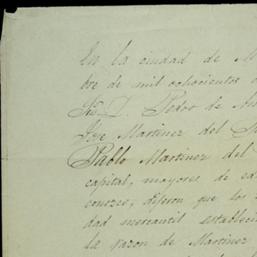 En la ciudad de M
bre de mil ochocientos
Sr. D. Pedro de
Martinez del
Pablo Martinez del
capital, mayores de ed
conozco; dijeron que los
dad mercantil establec
la razon de Martinez